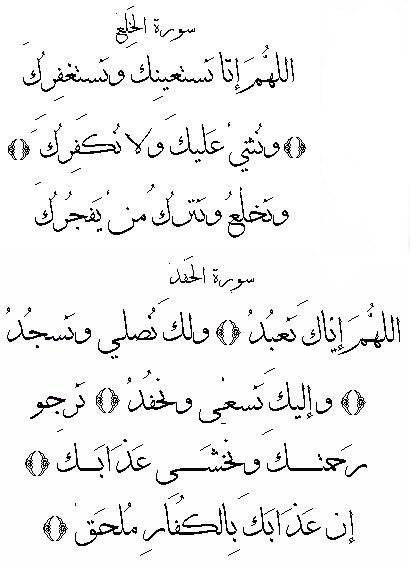 سورة الخلع
اللهُمَ إنّا نستعينك ونستغفرك
﴿﴾ ونُثني عليكَ ولا نُكفرك ﴿﴾
ونخلعُ ونتركُ منْ يَفجُرُكَ
سورة الحفد
اللهُمَ إيّاك نَعبُدُ ﴿﴾ ولك نُصلي ونسجُدُ
﴿﴾ وإليك نَسعى ونحفُدُ ﴿﴾ نرجو
رحمتك ونخشى عذابك ﴿﴾
إن عذابك بالكُفارِ مُلحق ﴿﴾